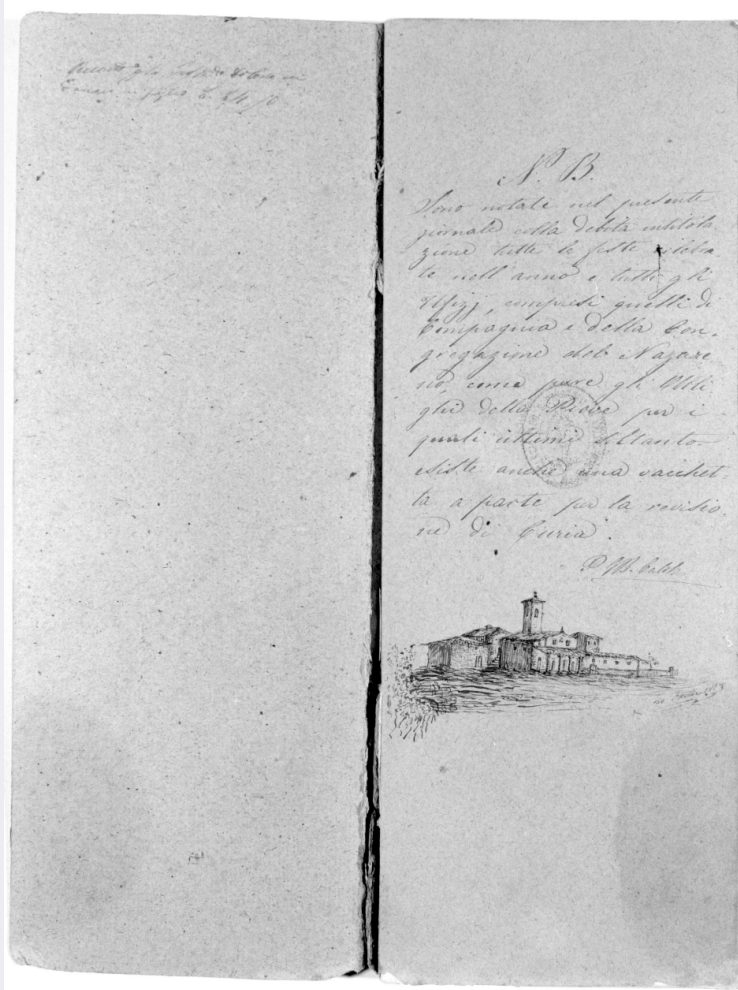 N. B.
Sono notate nel presente
giornale colla debita intitola
zione tutte le feste celebra
te nell'anno e tutti gli
Ufizj, compresi quelli di
Compagnia e della Con-
gregazione del Nazare
no, come pure gli Obbli
ghi della Pieve per i
quali ultimi soltanto
esiste anche una vacchet-
ta a parte per la revisio
ne di Curia.